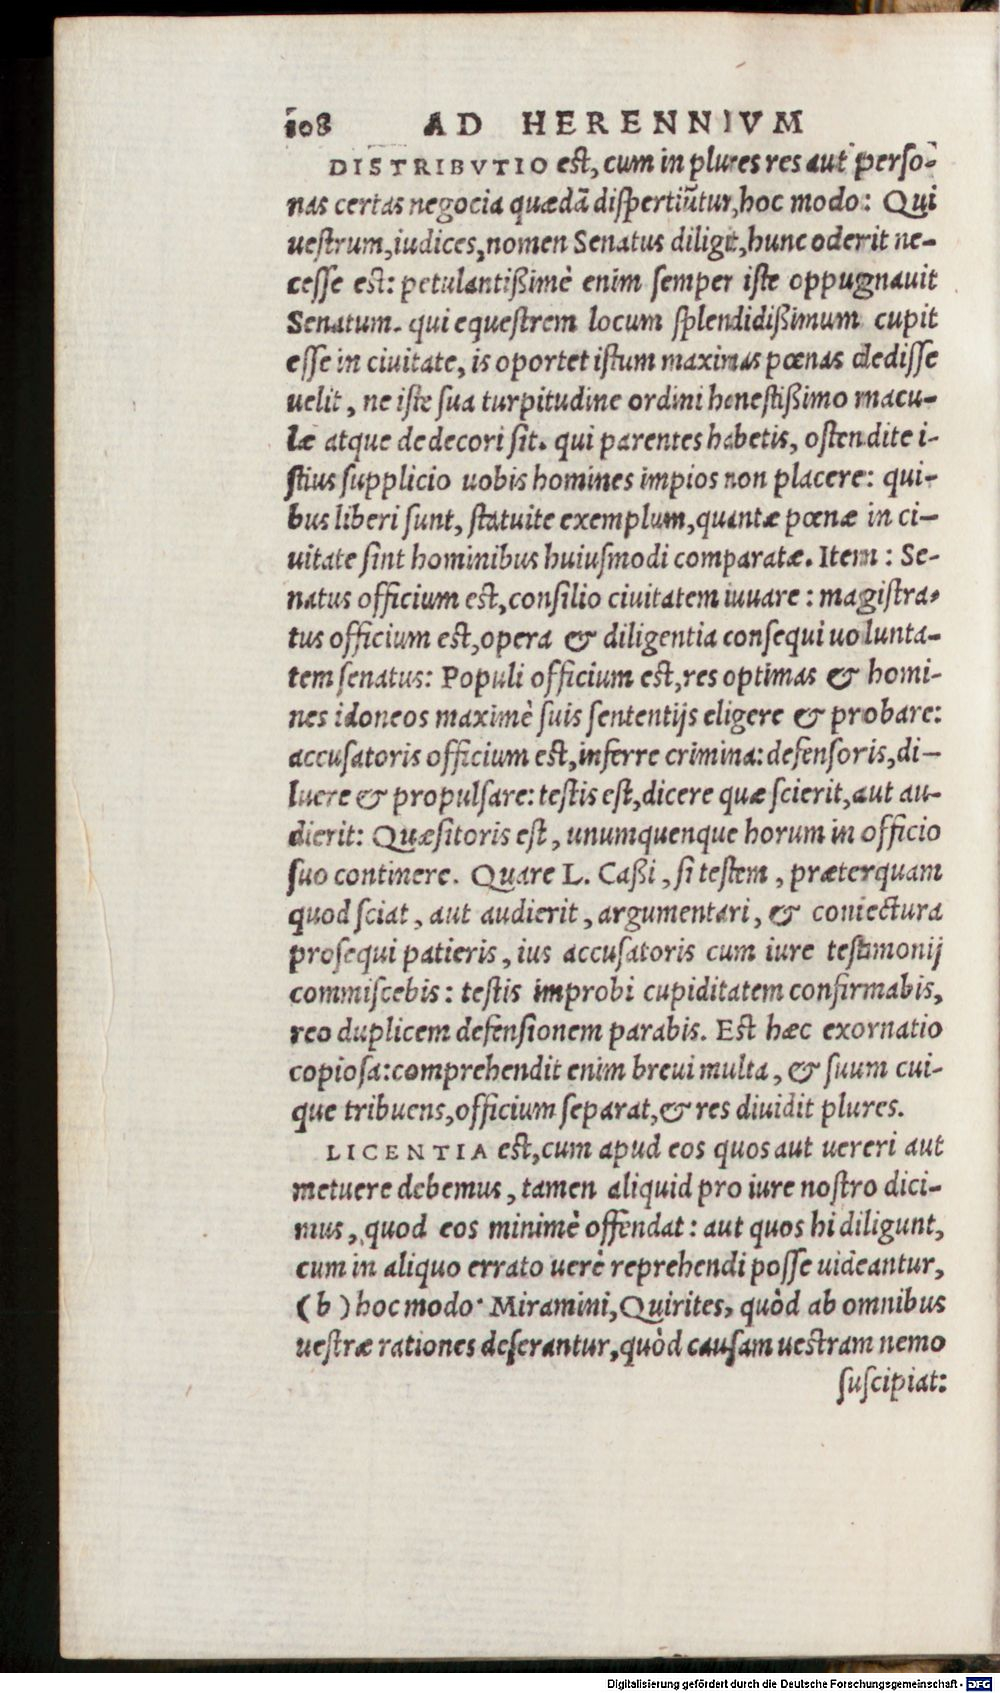 108 AD HERENNIVM
DISTRIBVTIO est, cum in plures res aut perso-
nas certas negocia quædã dispertiũtur, hoc modo: Qui
uestrum, iudices, nomen Senatus diligit, hunc oderit ne-
cesse est: petulantißimè enim semper iste oppugnauit
Senatum. qui equestrem locum splendidißimum cupit
esse in ciuitate, is oportet istum maximas pœnas dedisse
uelit, ne iste sua turpitudine ordini honestißimo macu-
læ atque dedecori sit. qui parentes habetis, ostendite i-
stius supplicio uobis homines impios non placere: qui-
bus liberi sunt, statuite exemplum, quantæ pœnæ in ci-
uitate sint hominibus huiusmodi comparatæ. Item: Se-
natus officium est, consilio ciuitatem iuuare: magistra-
tus officium est, opera & diligentia consequi uolunta-
tem senatus: Populi officium est, res optimas & homi-
nes idoneos maximè suis sententijs eligere & probare:
accusatoris officium est, inferre crimina: defensoris, di-
luere & propulsare: testis est, dicere quæ scierit, aut au-
dierit: Quæsitoris est, unumquenque horum in officio
suo continere. Quare L. Caßi, si testem, præterquam
quod sciat, aut audierit, argumentari, & coniectura
prosequi patieris, ius accusatoris cum iure testimonij
commiscebis: testis improbi cupiditatem confirmabis,
reo duplicem defensionem parabis. Est hæc exornatio
copiosa: comprehendit enim breui multa, & suum cui-
que tribuens, officium separat, & res diuidit plures.
LICENTIA est, cum apud eos quos aut uereri aut
metuere debemus, tamen aliquid pro iure nostro dici-
mus, quod eos minimè offendat: aut quos hi diligunt,
cum in aliquo errato uerè reprehendi posse uideantur,
(b) hoc modo· Miramini, Quirites, quòd ab omnibus
uestræ rationes deserantur, quòd causam uestram nemo
suscipiat:
Digitalisierung gefördert durch die Deutsche Forschungsgemeinschaft - DFG